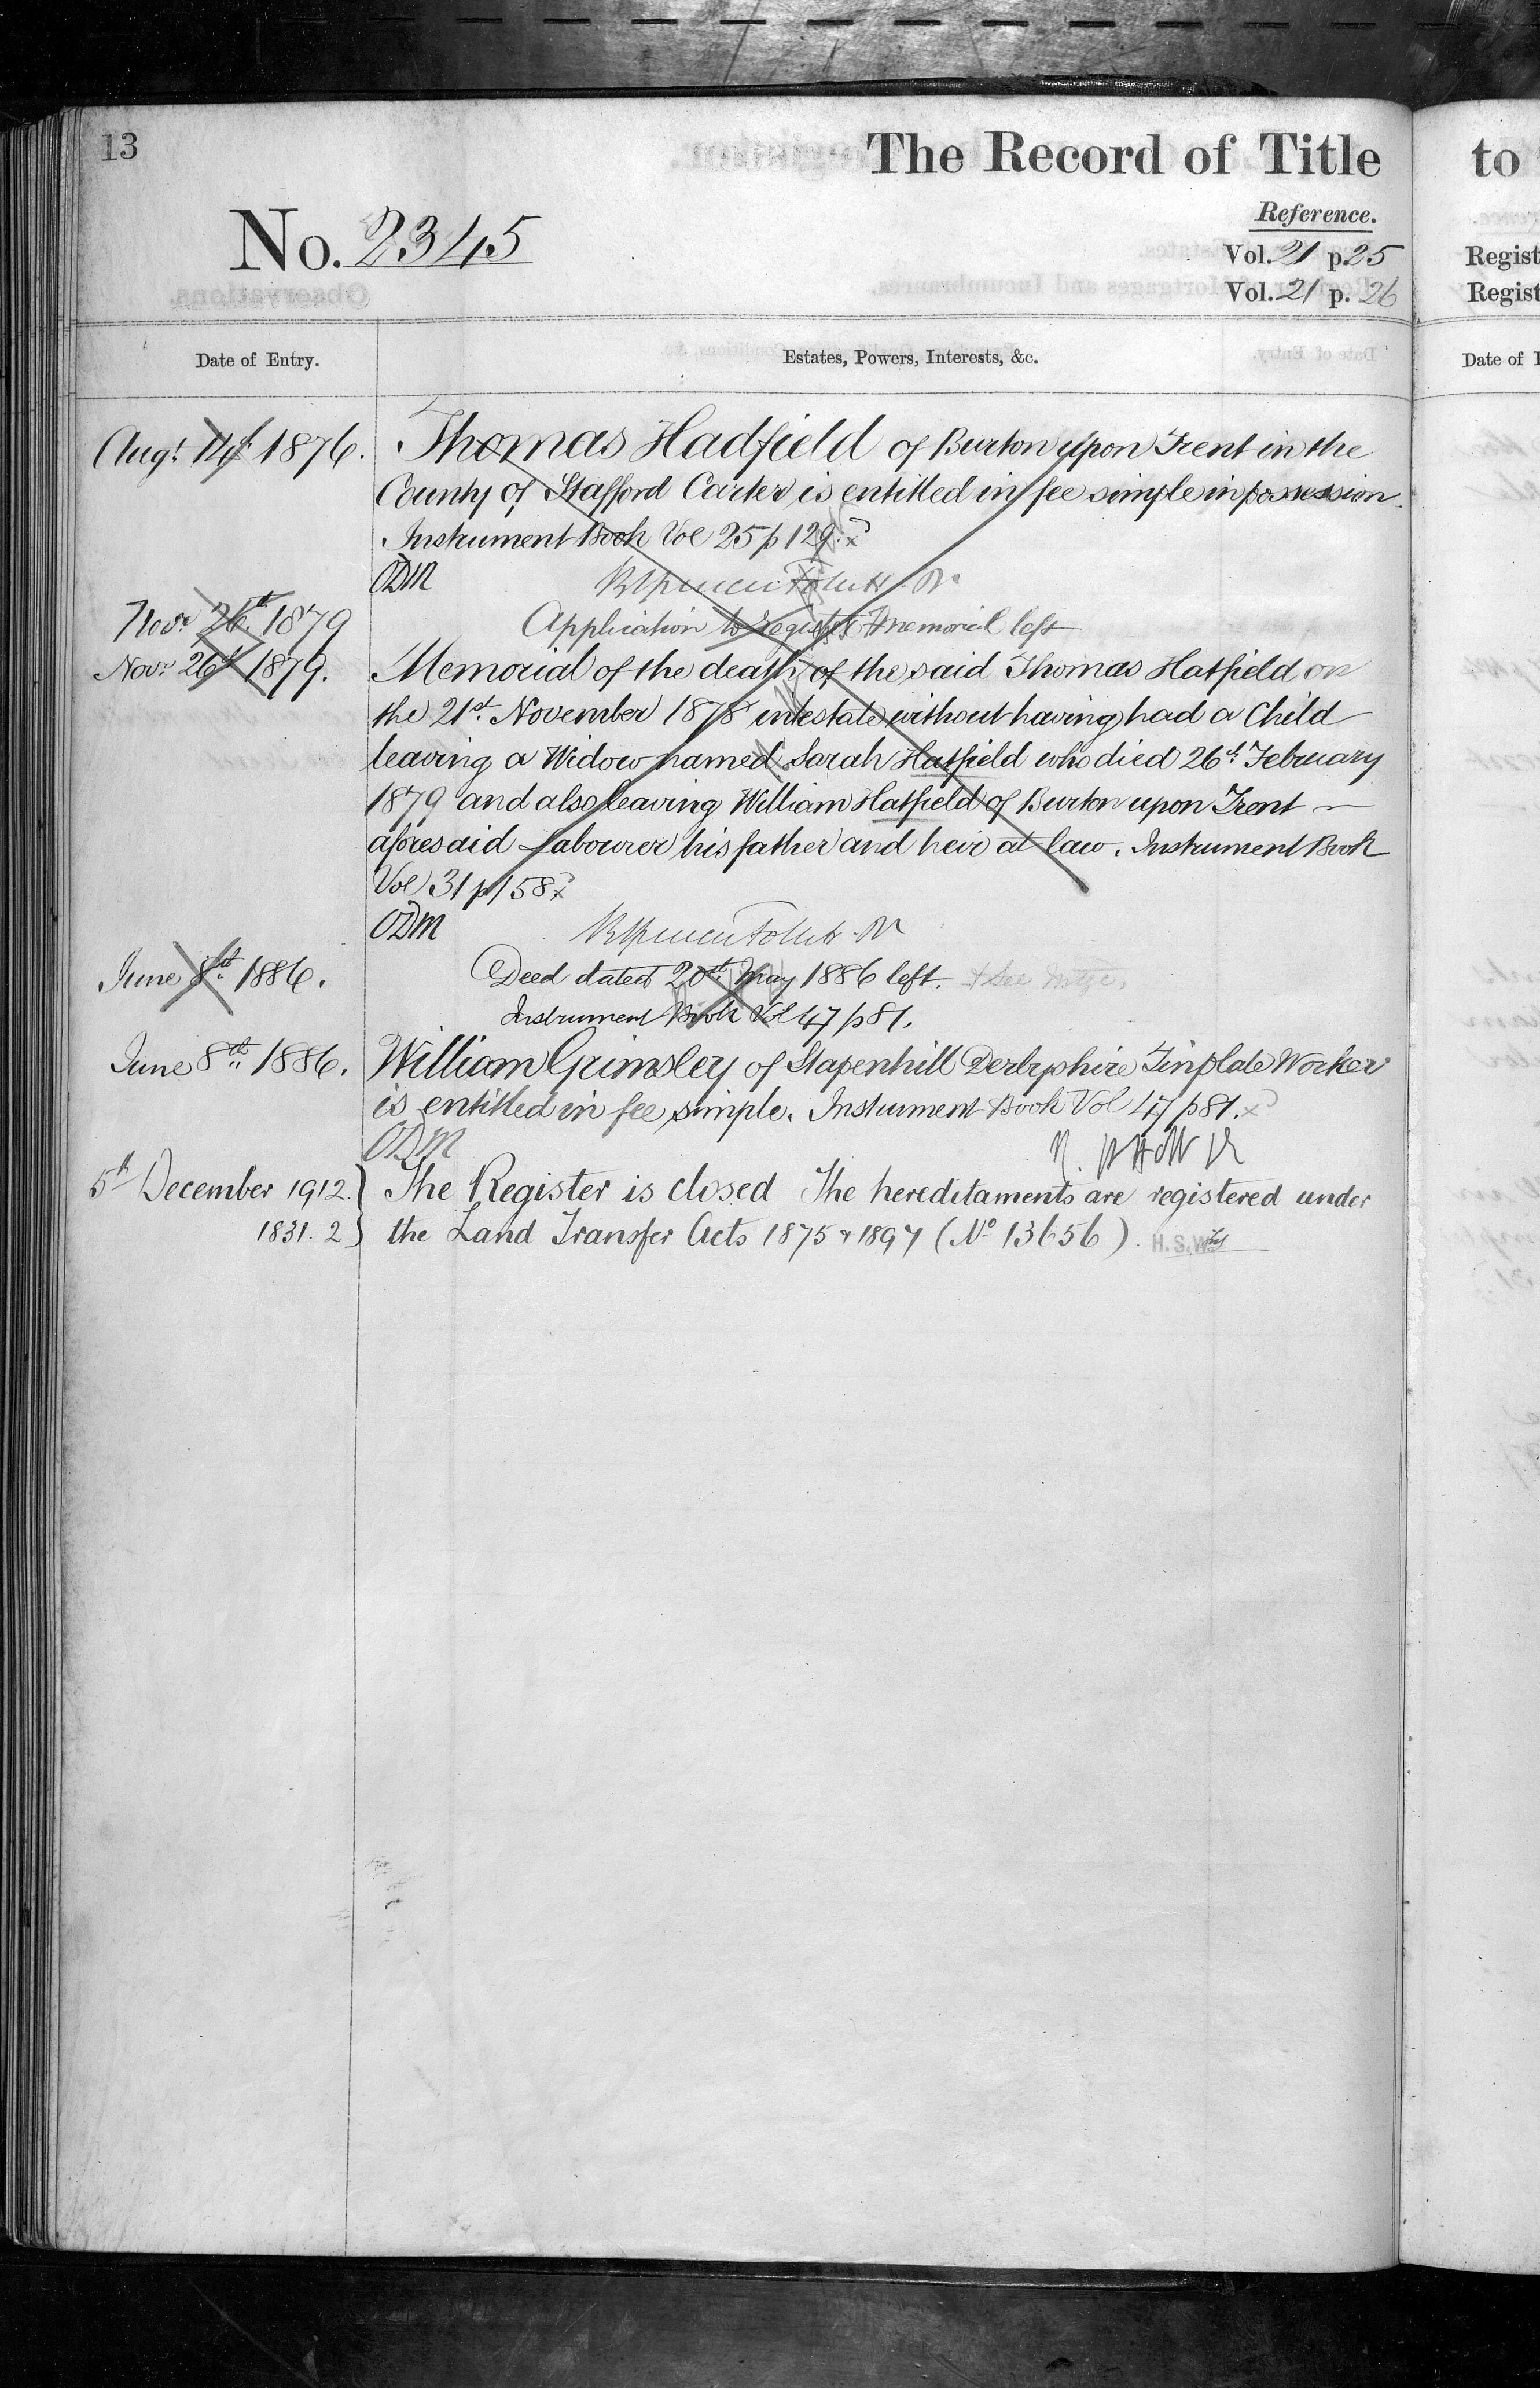 13
The Record of Title
to
Reference.
No. 2345
Vol. 21 p. 25
Regist
Vol. 21 p. 26
Regist
Date of Entry.
Estates, Powers, Interests, &c.
Date of
Augt. 14th 1876.
Thomas Hadfield of Burton upon Trent in the
County of Stafford Carter is entitled in fee simple in possession.
Instrument Book Vol 25 p 129.
ODM
Novr. 26th 1879
Application to register Memorial left
Novr. 26th 1879.
Memorial of the death of the said Thomas Hatfield on
the 21st. November 1878 intestate without having had a Child
leaving a Widow named Sarah Hatfield who died 26th February
1879 and also leaving William Hatfield of Burton upon Trent
aforesaid Labourer his father and heir at law. Instrument Book
Vol 31 p 158
ODM
June 8th. 1886.
Deed dated 20th May 1886 left.
Instrument Book Vol 47 p 81.
June 8th. 1886.
William Grimsley of Stapenhill Derbyshire Tinplate Worker
is entitled in fee simple. Instrument Book Vol 47 p 81.
ODM
5th December 1912.
The Register is closed The hereditaments are registered under
1831. 2
the Land Transfer Acts 1875 & 1897 (No 13656).
H.S.W.